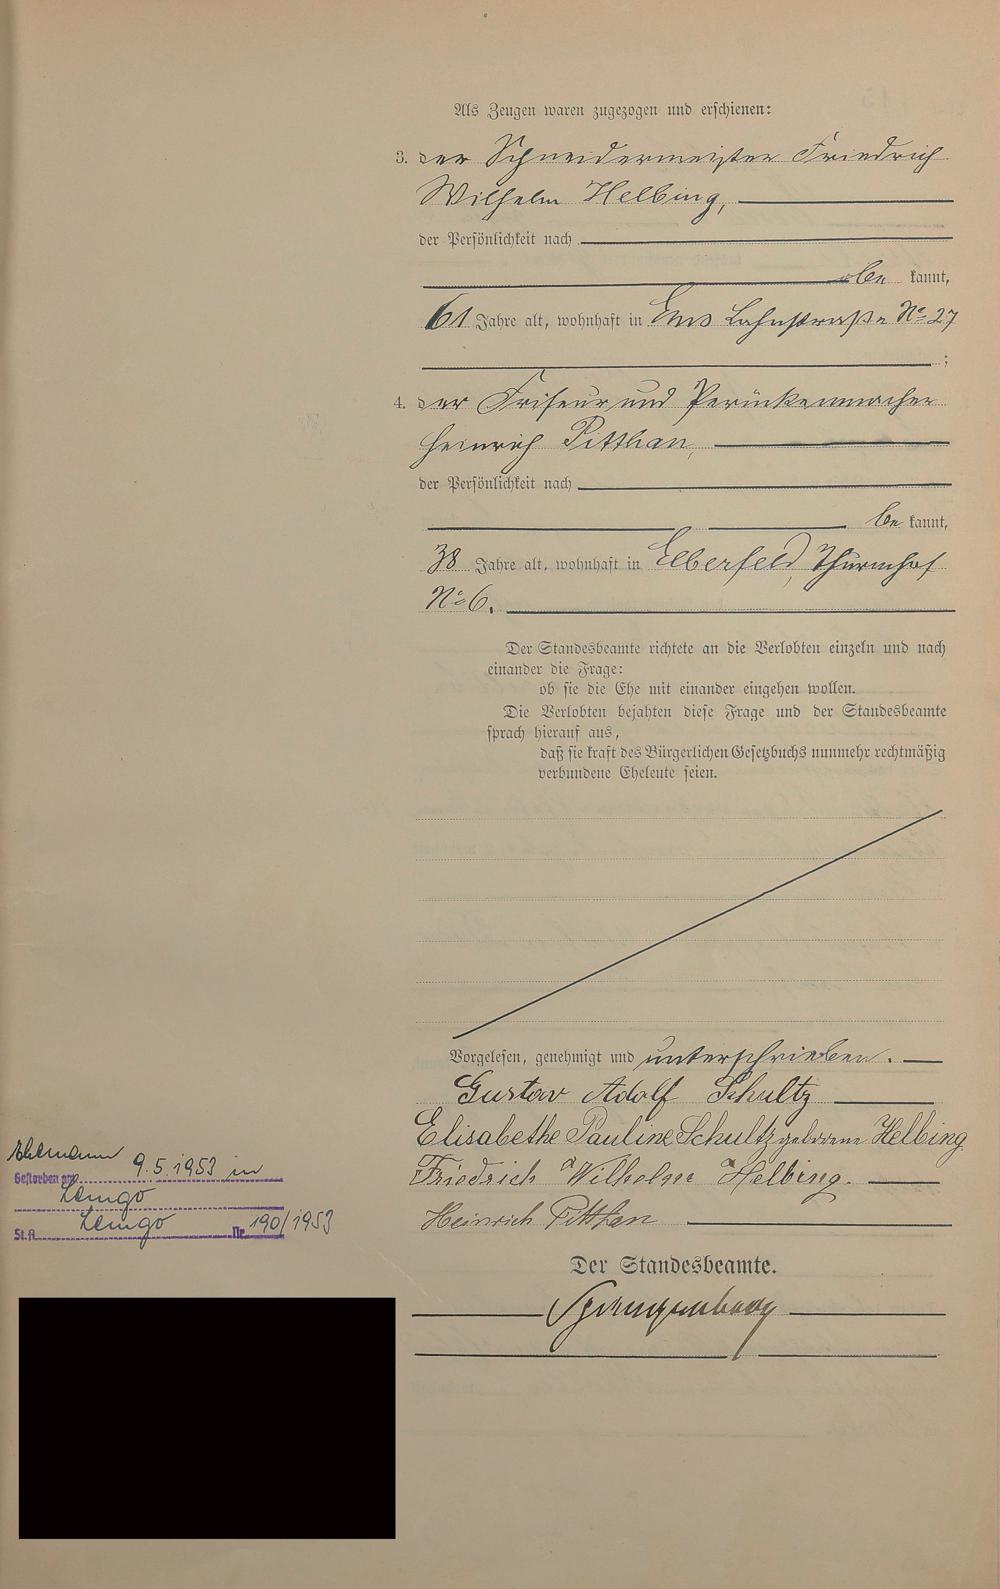 Als Zeugen waren zugezogen und erschienen:
3. der Schneidermeister Friedrich
Wilhelm Helbing,
der Persönlichkeit nach
be kannt,
61 Jahre alt, wohnhaft in Ems Lahnstraße No 27
;
4. der Friseur und Perückenmacher
Heinrich Pitthan,
der Persönlichkeit nach
be kannt,
38 Jahre alt, wohnhaft in Elberfeld, Thurmhof
No 6.
Der Standesbeamte richtete an die Verlobten einzeln und nach
einander die Frage:
ob sie die Ehe mit einander eingehen wollen.
Die Verlobten bejahten diese Frage und der Standesbeamte
sprach hierauf aus,
daß sie kraft des Bürgerlichen Gesetzbuchs nunmehr rechtmäßig
verbundene Eheleute seien.
Vorgelesen, genehmigt und unterschrieben.
Gustav Adolf Schultz
Elisabethe Pauline Schultz geborene Helbing
Friedrich Wilhelm Helbing.
Heinrich Pitthan
Der Standesbeamte.
Ehemann
Gestorben am 9.5.1953 in
Lemgo
St.A. Lemgo Nr. 190/1953